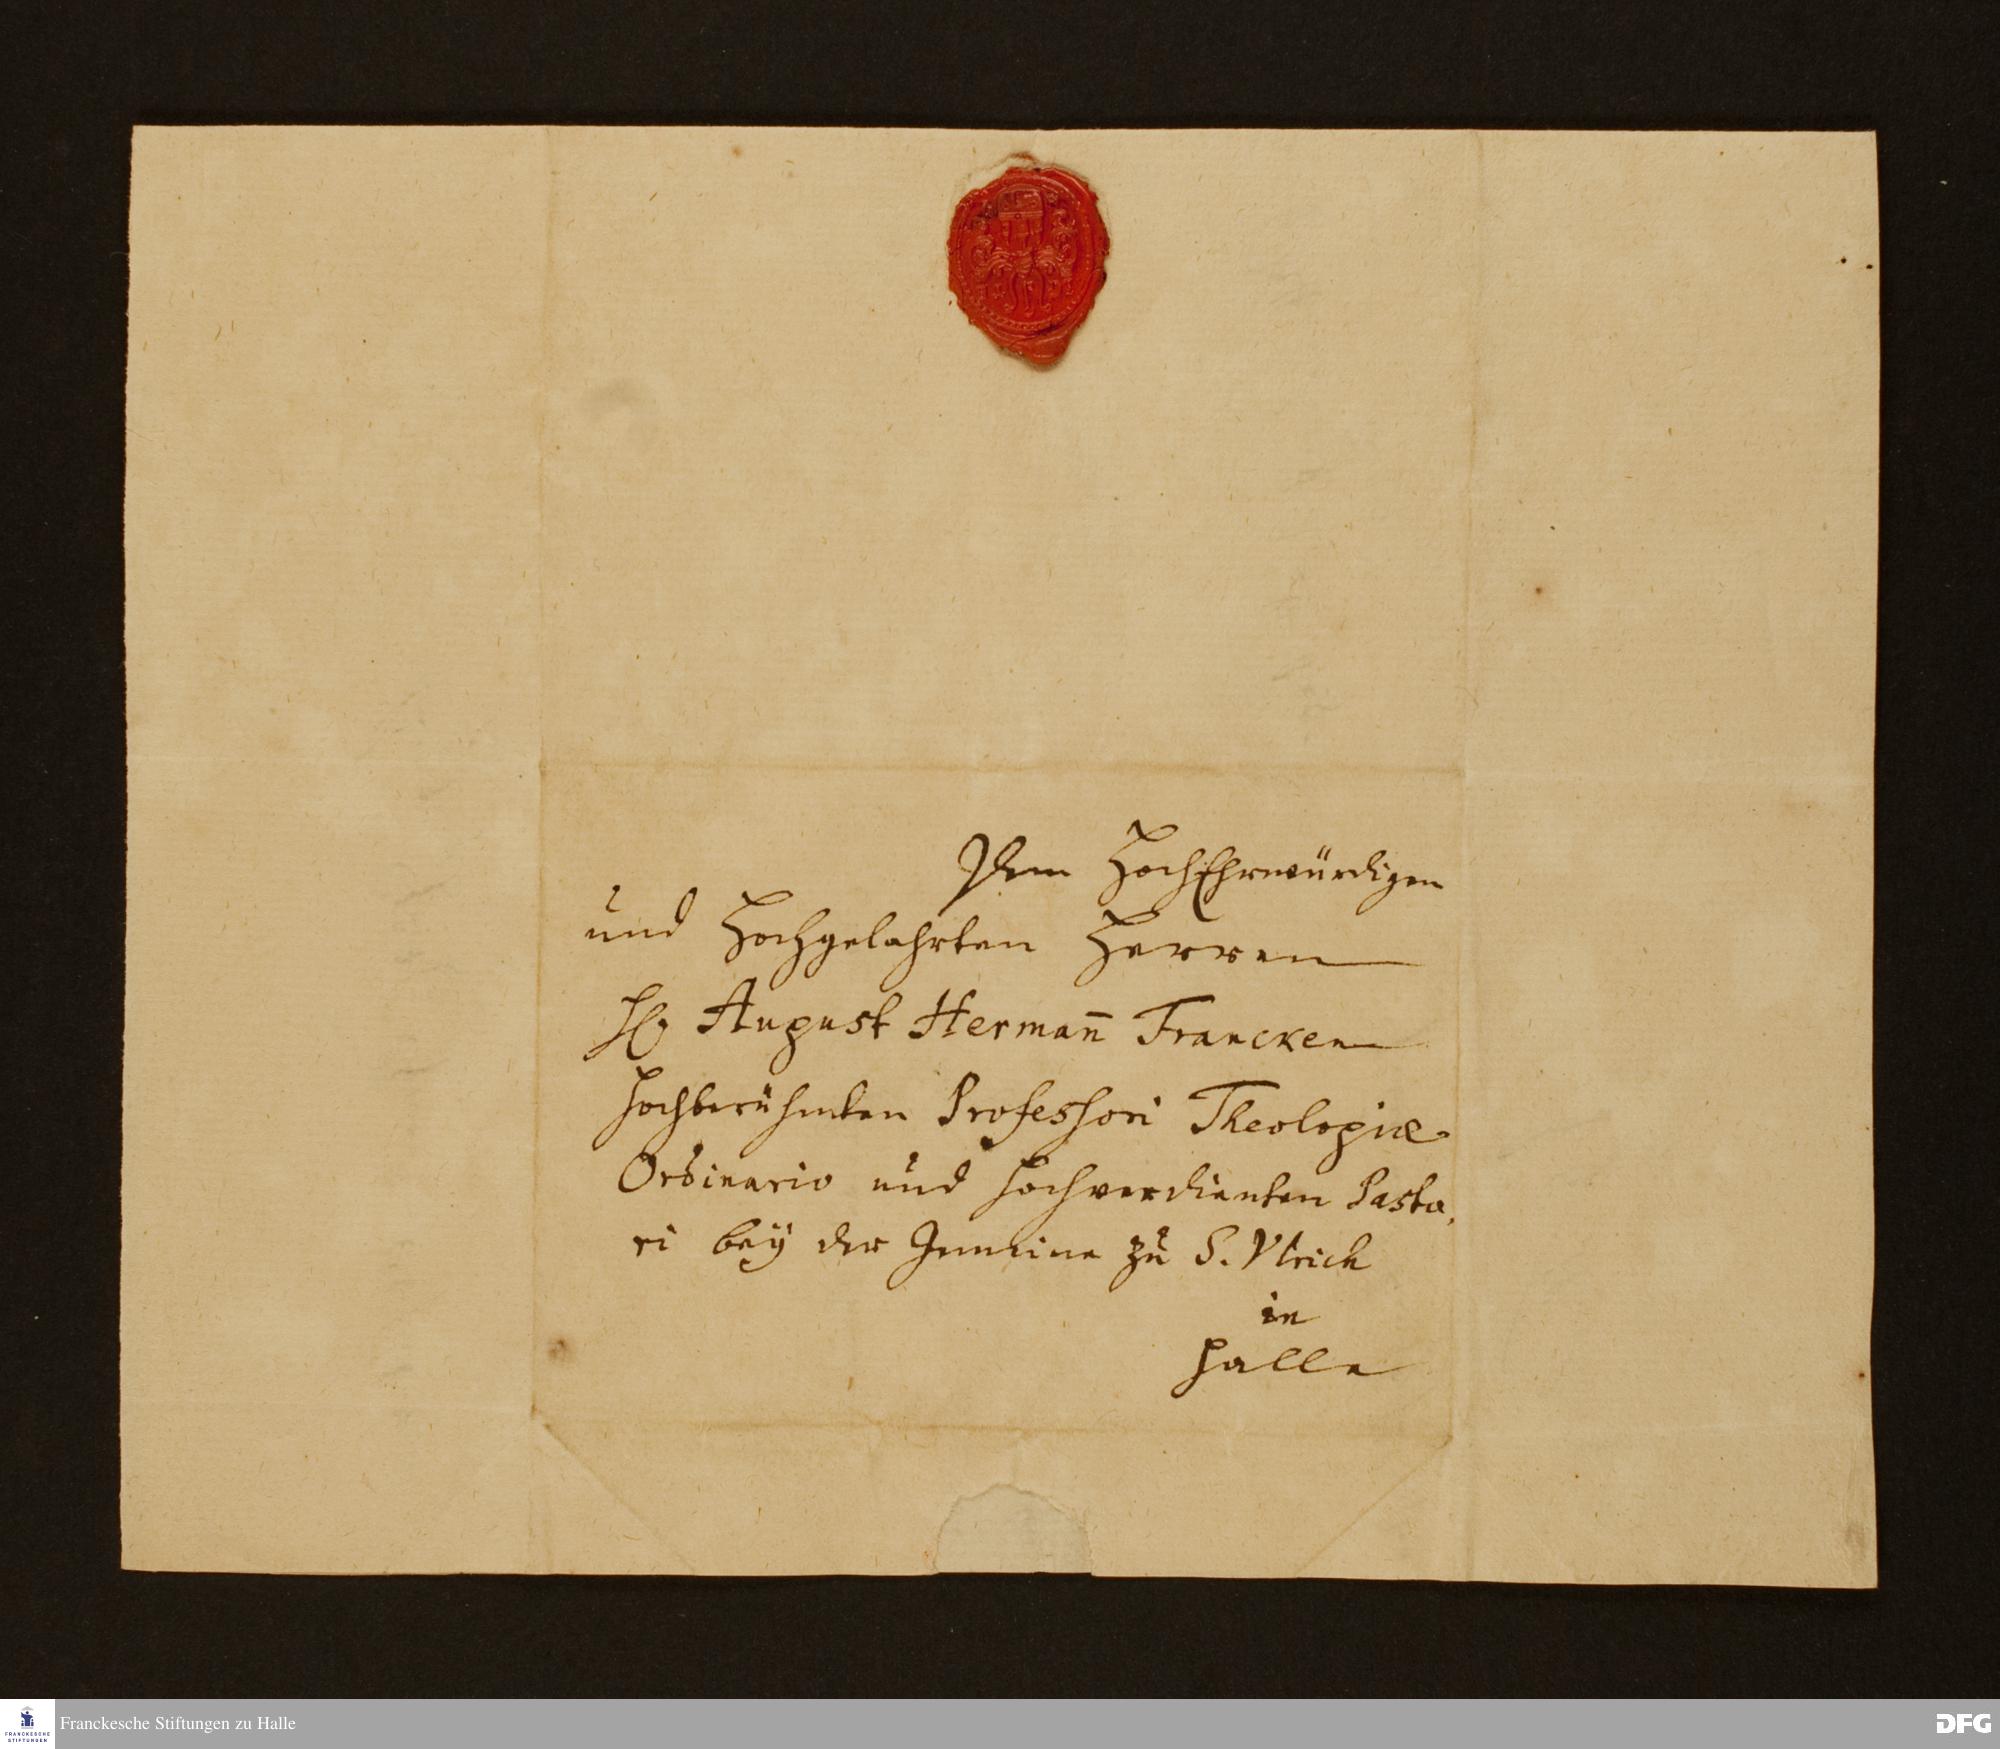 Dem HochEhrwürdigen
und Hochgelahrten Herren
H. August Herman̄ Francken
hochberühmten Professori Theologiæ
Ordinario und hochverdienten Pasto,
ri bey der Gemeine zu S. Vlrich
in
Halle
Franckesche Stiftungen zu Halle
FRANCKESCHE
STIFTUNGEN
DFG